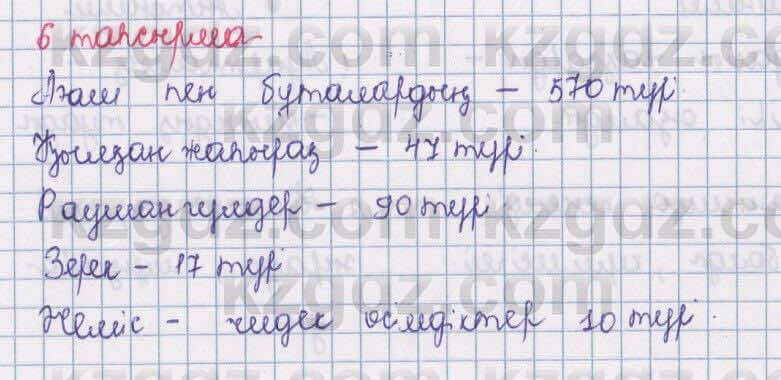 6 тапсырма
Ағаш пен бұталардың – 570 түрі
Қылқан жапырақ – 47 түрі.
Раушан гүлдер – 90 түрі
Зерек – 17 түрі
Жеміс – жидек өсімдіктер 10 түрі.
kzgdz.com